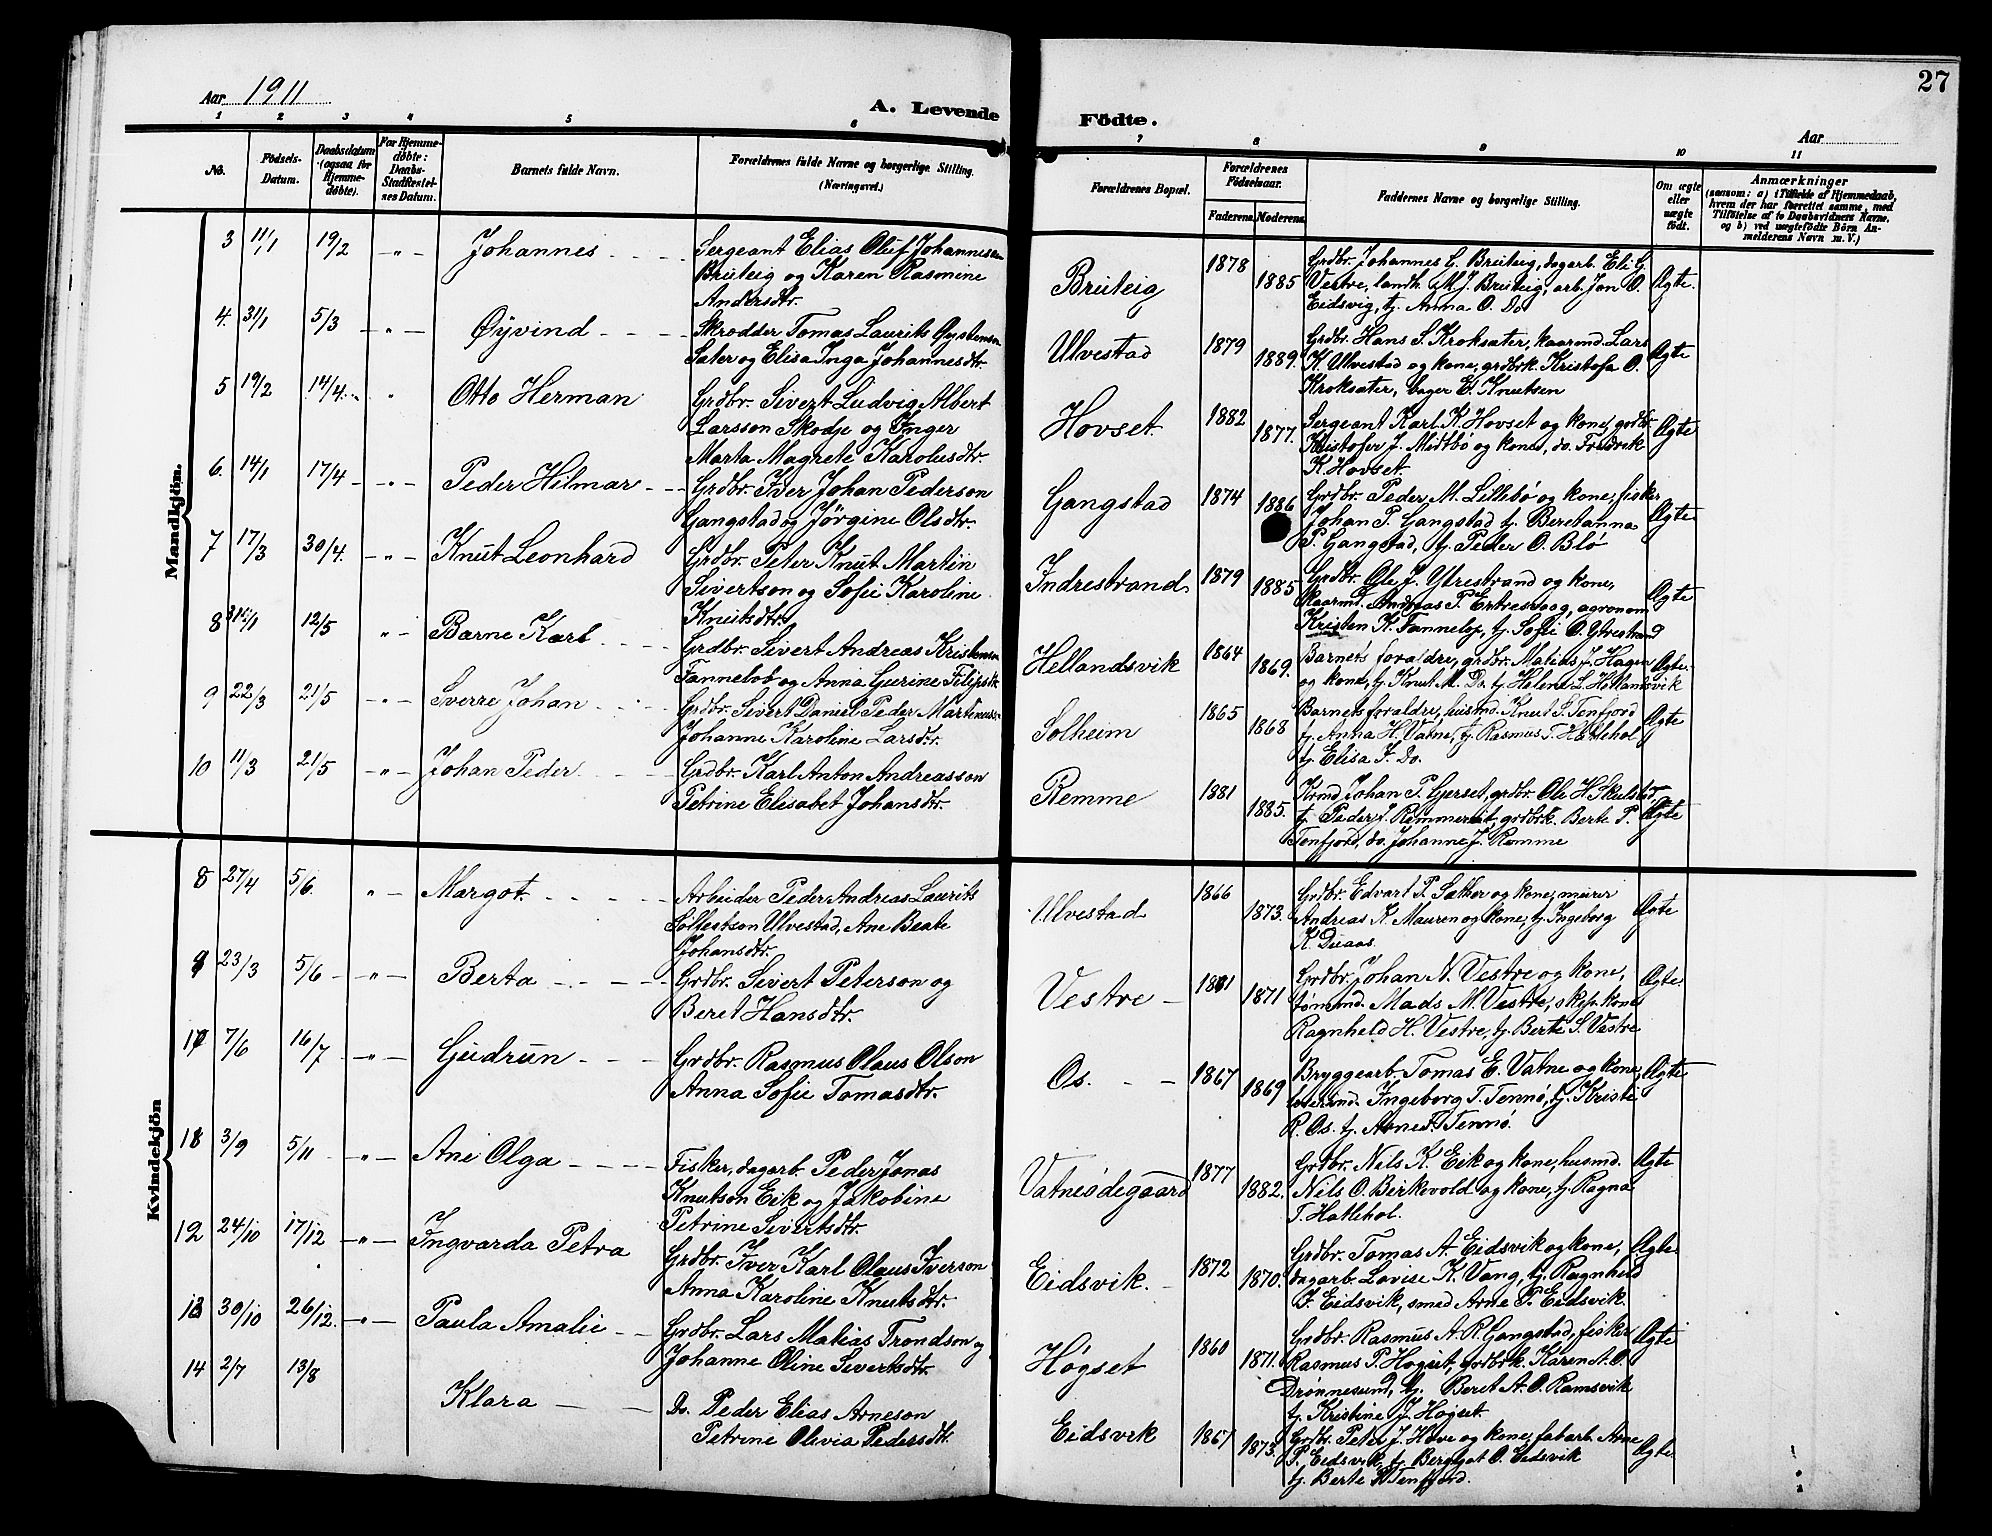 27
Aar 1911
A. Levende Fødte.
Aar
1 2 3 4 5 6 7 8 9 10 11
No.
Fødsels-Datum.
Daabsdatum (ogsaa for Hjemmedøbte).
For Hjemmedøbte: Daabs-Stadfæstelses Datum.
Barnets fulde Navn.
Forældrenes fulde Navne og borgerlige Stilling. (Næringsvei.)
Forældrenes Bopæl.
Forældrenes Fødselsaar.
Faderens. Moderens.
Faddernes Navne og borgerlige Stilling.
Om ægte eller uægte født.
Anmærkninger
(saasom: a) i Tilfælde af Hjemmedaab, hvem der har forrettet samme, med Tilføielse af to Daabsvidners Navne. og b) ved uægtefødte Børn Anmelderens Navn m. V.)
Mandkjøn.
3 11/1 19/2 Johannes Sergeant Elias Oluf Johannesen Bruteig og Karen Rasmine Andersdtr. Bruteig 1878 1885 Grdbr. Johannes G. Bruteig, dagarb. Eli G. Vestre, landh. M. J. Bruteig, arb. Jon O. Eidsvig, tj. Anna O. Do Ægte.
4. 31/1 5/3 Øyvind Skrædder Tomas Laurits Øystensen Sæter og Elisa Inga Johannesdtr. Ulvestad 1879 1889. Grdbr. Hans S. Kroksæter, kaarmd. Lars K. Ulvestad og kone, grdbrk. Kristofa O. Kroksæter, bager E. Knutsen Ægte
5 19/2 14/4. Otto Herman Grdbr. Sivert Ludvig Albert Larsson Skodje og Inger Marta Magrete Karolusdtr. Hovset 1882 1877. Sergeant Karl K. Hovset og kone, grdbr. Kristofer J. Midtbø og kone, do. Fredrik K. Hovset. Ægte
6. 14/1 17/4 Peder Hilmar Grdbr. Iver Johan Pederson Gangstad og Jørgine Olsdtr. Gangstad 1874 1886 Grdbr. Peder M. Lillebø og kone, fisker Johan P. Gangstad tj. Beretanna P. Gangstad, tj. Peder O. Blø Ægte
7 17/3 30/4. Knut Leonhard Grdbr. Peter Knut Martin Sivertson og Sofie Karoline Knutsdtr. Indrestrand 1879 1885 Grdbr. Ole J. Ytrestrand og kone, kaarmd. Andreas P. agronom Kristen K. Tannelop, tj. Sofie O. Ytrestrand Ægte
8 12/5 Barne Karl Grdbr. Sivert Andreas Kristensen Tanneløb og Anna Gurine Filipsdtr. Hellandsvik 1864 1869. Barnets forældre, grdbr. Matias J. Hagen og kone, tj. Knut M. Do. tj. Helene L. Hellandsvik Ægte
9 22/3 21/5 Sverre Johan Grdbr. Sivert Daniel Peder Martinuss. Johanne Karoline Larsdtr. Solheim 1865 1868 Barnets forældre, husmd. Knut S. Tenfjord tj. Anna H. Vatne, tj. Rasmus T. Hatlehol tj. Elisa F. Do. Ægte
10 11/3 21/5 Johan Peder Grdbr. Karl Anton Andreasson Petrine Elisabet Johansdtr. Remme 1881 1885. Krmd Johan P. Gjerset, grdbr. Ole H. tj. Peder J. grdbrk. Berte P. Tenfjord, do. Johanne J. Remme Ægte
Kvindekjøn
8 27/4 5/6. Margot. Arbeider Peder Andreas Laurits Ulvestad, Ane Beate Johansdtr. Ulvestad 1866 1873. Grdbr. Edvart P. Sætker og kone, murer Andreas K. Mauren og kone, tj. Ingeborg K. Duaas. Ægte
9 23/3 5/6 Berta Grdbr. Sivert Peterson og Beret Hansdtr. Vestre 1871 Grdbr. Johan N. Vestre og kone, tømmd. Mads M. Vestre, kone Ragnheld H. Vestre, tj. Berte S. Vestre Ægte
7/6 16/7 Gudrun Grdbr. Rasmus Olaus Olson Anna Sofie Tomasdtr. Os. 1867 1869 Bryggearb. Tomas E. Vatne og kone, Ingeborg T. Tennø, tj. Kristi R. Os. tj. Arne T. Tennø. Ægte
11 3/9 5/11 Ane Olga Fisker, dagarb. Peder Jonas Knutson Eik og Jakobine Petrine Sivertsdtr. Vatneødegaard 1877 1882. Grdbr. Nils K. Eik og kone, husmd. Nils O. Birkevold og kone, tj. Ragna T. Hatlehol. Ægte
12 24/10 17/12 Ingvarda Petra Grdbr. Iver Karl Olaus Iverson Anna Karoline Knutsdtr. Eidsvik. 1872 1870. Grdbr. Tomas A. Eidsvik og kone, dagarb. Lovise K. Vang, tj. Ragnheld J. Eidsvik, smed Arne P. Eidsvik. Ægte
13 30/10 26/12. Paula Amalie Grdbr. Lars Matias Trondson og Johanne Oline Sivertsdtr. Høgset 1860 1871. Grdbr. Rasmus A. R. Gangstad, fisker Rasmus P. Høgset, grdbrk. Karen A. O. Drønnesund, tj. Beret A. O. Ramsvik tj. Kristine J. Høgset. Ægte
14 2/7 13/8 Klara Do. Peder Elias Arneson Petrine Olivia Pedersdtr. Eidsvik 1867 1873. Grdbr. Peter J. Hove og kone, fabarb. Arne P. Eidsvik, tj. Bergljot O. Eidsvik tj. Berte P. Tenfjord. Ægte